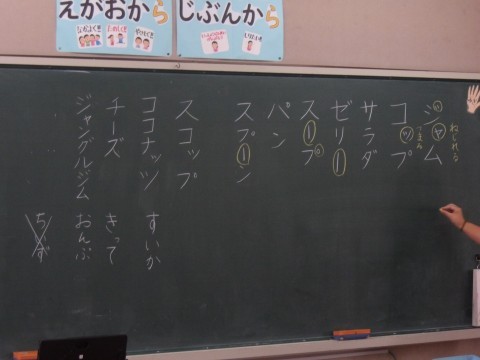 えがおから
じぶんから
ジャム
コップ
サラダ
ゼリー
スープ
パン
スプーン
スコップ
ココナッツ
チーズ
ジャングルジム
すいか
きって
おんぶ
ちず